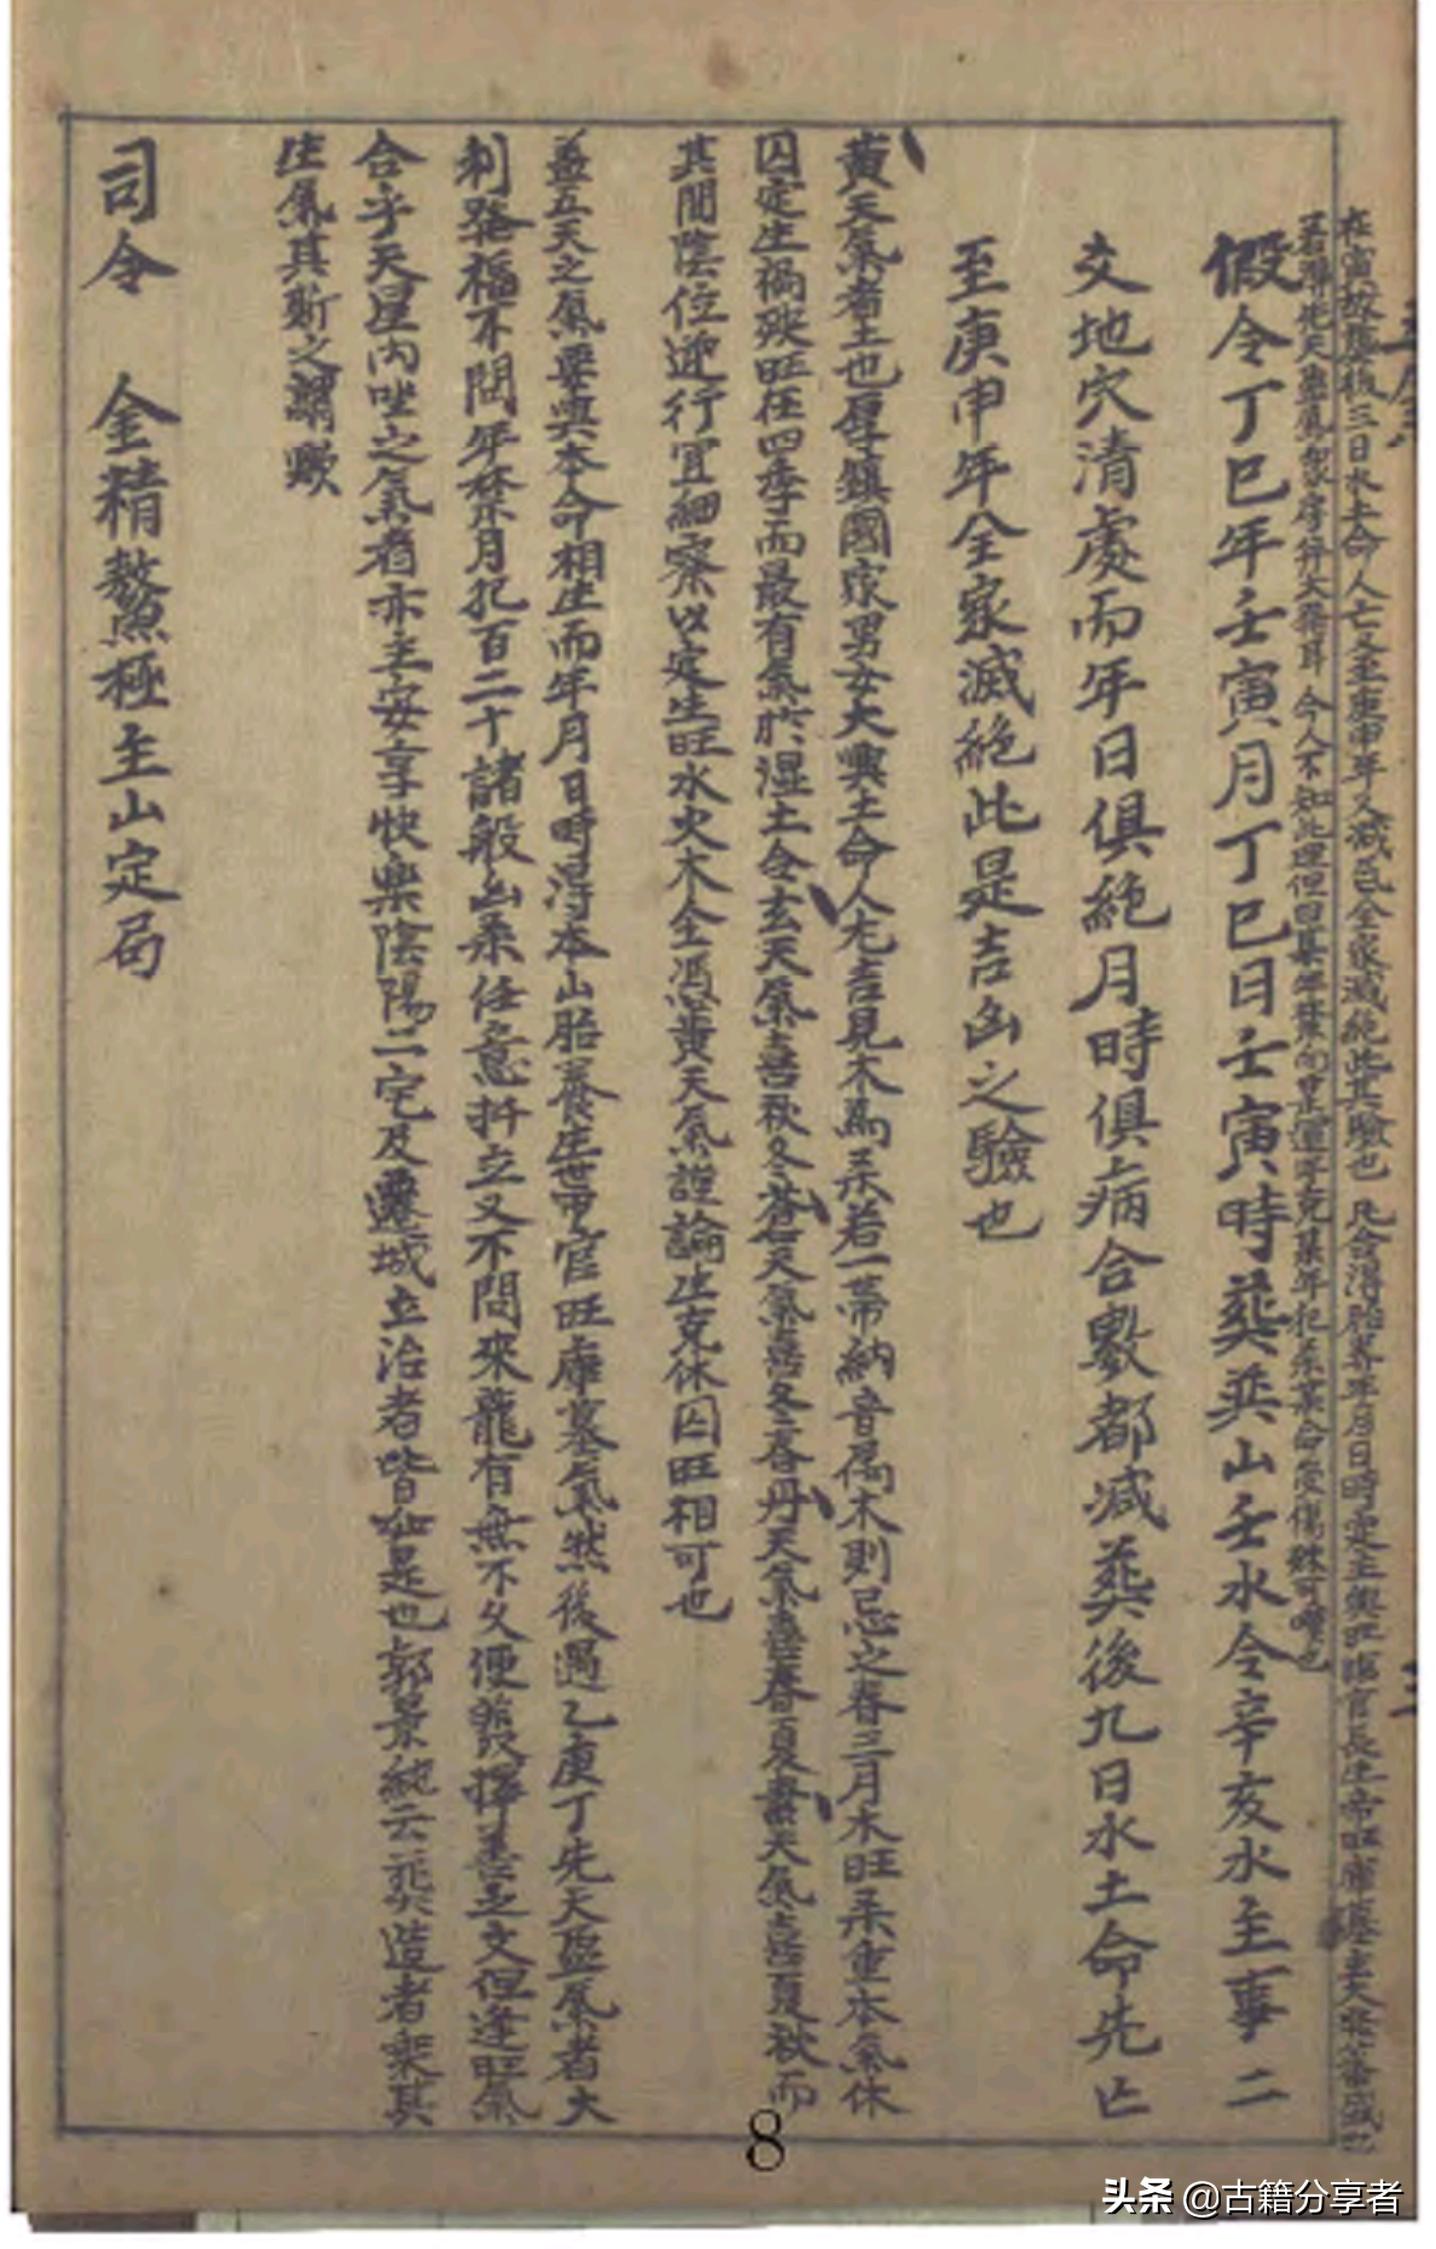 在寅故葬後三日水土命人亡又至庚申年又滅邑全家滅絶此其驗也 凡合得胎养年月日時定主興旺臨官長生帝旺庫墓主大
今人不知此理但曰某年某向是運字克某年犯某某命受傷
假令丁巳年壬寅月丁巳日壬寅時葬㢲山壬水令辛亥水主事二
交地穴清處而年日俱絶月時俱病合數都滅葬後九日水土命先亡
至庚申年全家滅絶此是吉凶之驗也
黄天氣者土也厚鎮國家男女大興土命人尤吉見木爲杀若一幕納音屬木則忌之春三月木旺杀重本氣休
囚定生禍殃旺在四季而最有氣於湿土令玄天氣喜秋冬蒼天氣喜冬春丹天氣喜春夏素天氣喜夏秋而
其間陰位逆行宜細察以定生旺水火木金憑黄天氣證論生克休囚旺相可也
盖五天之氣要與本命相生而年月日時得本山胎养生世帝官旺庫墓氣然後遇乙庚丁先天盔氣者大
利發福不問年禁月犯百二十諸般凶杀任意扦立又不問來龍有無不久便發擇善之文但逢旺氣
合乎天星内坐之氣者亦主安享快樂陰陽二宅及遷城立治者皆如是也郭景純云葬造者乘其
生氣其斯之謂歟
司令 金精鰲極主山定局
8
头条 @古籍分享者